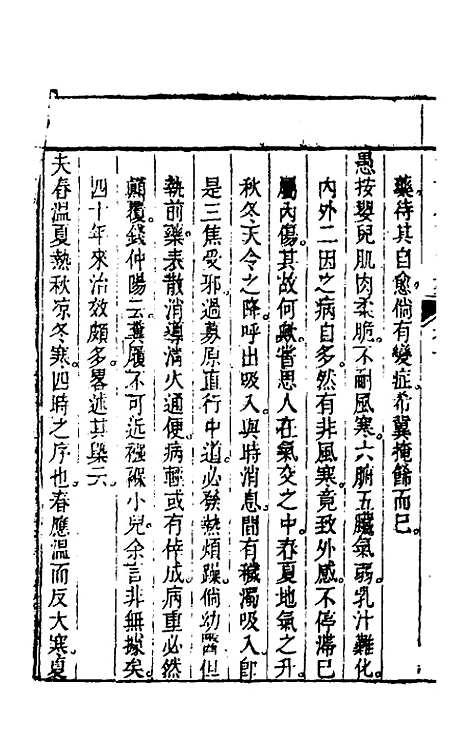 藥待其自愈倘有變症希冀掩飾而已
愚按嬰兒肌肉柔脆不耐風寒六腑五臟氣弱乳汁難化
內外二因之病自多然有非風寒竟致外感不停滯已
屬內傷其故何歟嘗思人在氣交之中春夏地氣之升
秋冬天令之降呼出吸入與時消息間有穢濁吸入即
是三焦受邪過募原直行中道必發熱煩躁倘幼醫但
執前藥表散消導瀉火通便病輕或有倖成病重必然
顛覆錢仲陽云糞履不可近襁褓小兒余言非無據矣
四十年來治效頗多畧述其槩云
夫春溫夏熱秋凉冬寒四時之序也春應溫而反大寒夏